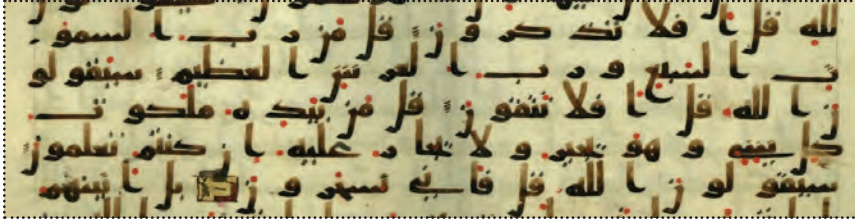 لله قل ا فلا تذكرون قل من رب السمو
ت السبع ورب العرش العظيم سيقولو
ن الله قل ا فلا تتقون قل من بيده ملكوت
كل شىء وهو يجير ولا يجار عليه ان كنتم تعلمون
سيقولون الله قل فانى تسحرون بل اتينهم